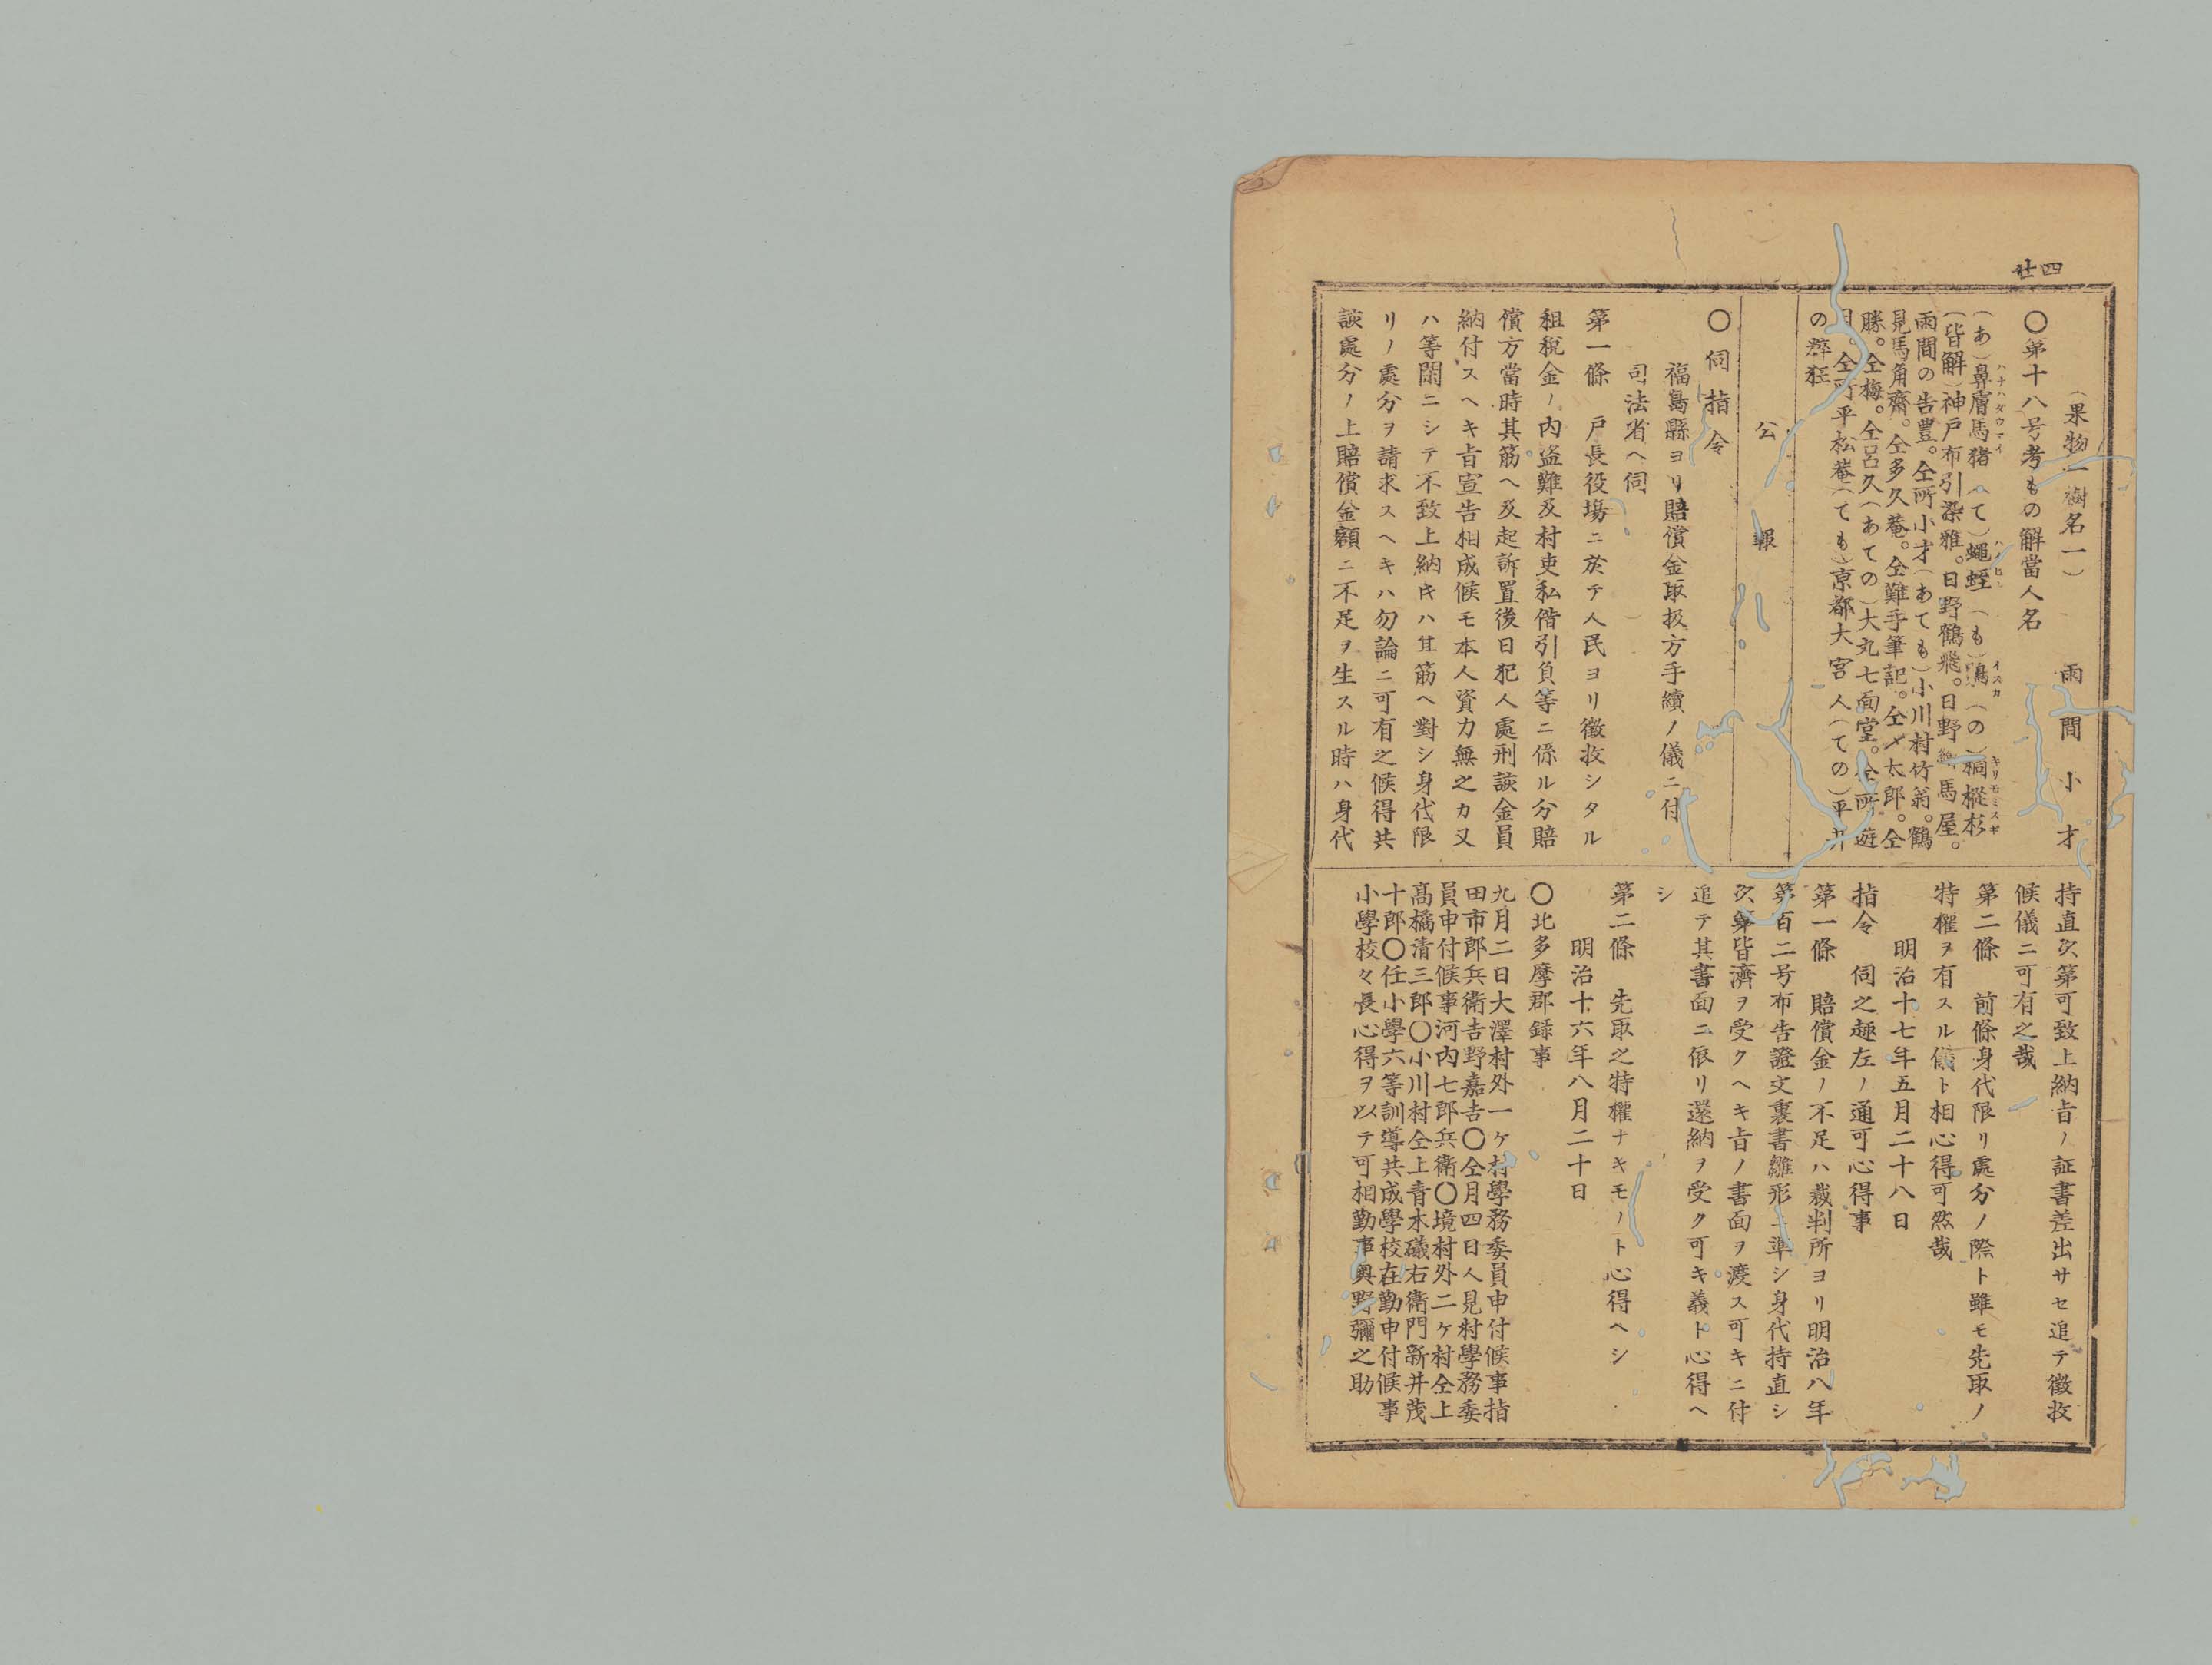 廿四
（果物一樹名一）　雨間小才
〇第十八号考もの解當人名
（あ）鼻層馬猪（て）蠅蛭（も）鳥（の）桐樅杉
ハナハダウマイ　ハイヒル　イスカ　キリモミスギ
（皆解）神戸布引染雅。日野鶴飛。日野馬屋。
雨間の告豊。仝所小才（あても）小川村竹翁。鶴
見馬角齋。仝多久菴。仝難手筆記。仝〆太郎。仝
勝。仝梅。仝呂久（あての）大丸七面堂。仝所遊
仝町平松菴（ても）京都大宮人（ての）平井
の粹狂
公報
〇伺指令
福島縣ヨリ賠償金取扱方手續ノ儀ニ付
司法省ヘ伺
第一條　戸長役場ニ於テ人民ヨリ徴收シタル
租税金ノ内盗難及村吏私借引負等ニ係ル分賠
償方當時其筋ヘ及起訴置後日犯人處刑該金員
納付スヘキ旨宣告相成候モ本人資力無之カ又
ハ等閑ニシテ不致上納民ハ其筋ヘ對シ身代限
リノ處分ヲ請求スヘキハ勿論ニ可有之候得共
該處分ノ上賠償金額ニ不足ヲ生スル時ハ身代
持直次第可致上納旨ノ証書差出サセ追テ徴收
候儀ニ可有之哉
第二條　前條身代限リ處分ノ際ト雖モ先取ノ
特權ヲ有スル儀ト相心得可然哉
明治十七年五月二十八日
指令　伺之趣左ノ通可心得事
第一條　賠償金ノ不足ハ裁判所ヨリ明治八年
第百二号布告證文裏書雛形ニ準シ身代持直シ
次第皆濟ヲ受クヘキ旨ノ書面ヲ渡ス可キニ付
追テ其書面ニ依リ還納ヲ受ク可キ義ト心得ヘ
シ
第二條　先取之特權ナキモノト心得ヘシ
明治十六年八月二十日
〇北多摩郡録事
九月二日大澤村外一ケ村學務委員申付候事指
田市郎兵衛吉野嘉吉〇仝月四日人見村學務委
員申付候事河内七郎兵衛〇境村外二ケ村仝上
髙橋清三郎〇小川村仝上青木礒右衛門新井茂
十郎〇任小學六等訓導共成學校在勤申付候事
小學校々長心得ヲ以テ可相勤事奥野彌之助